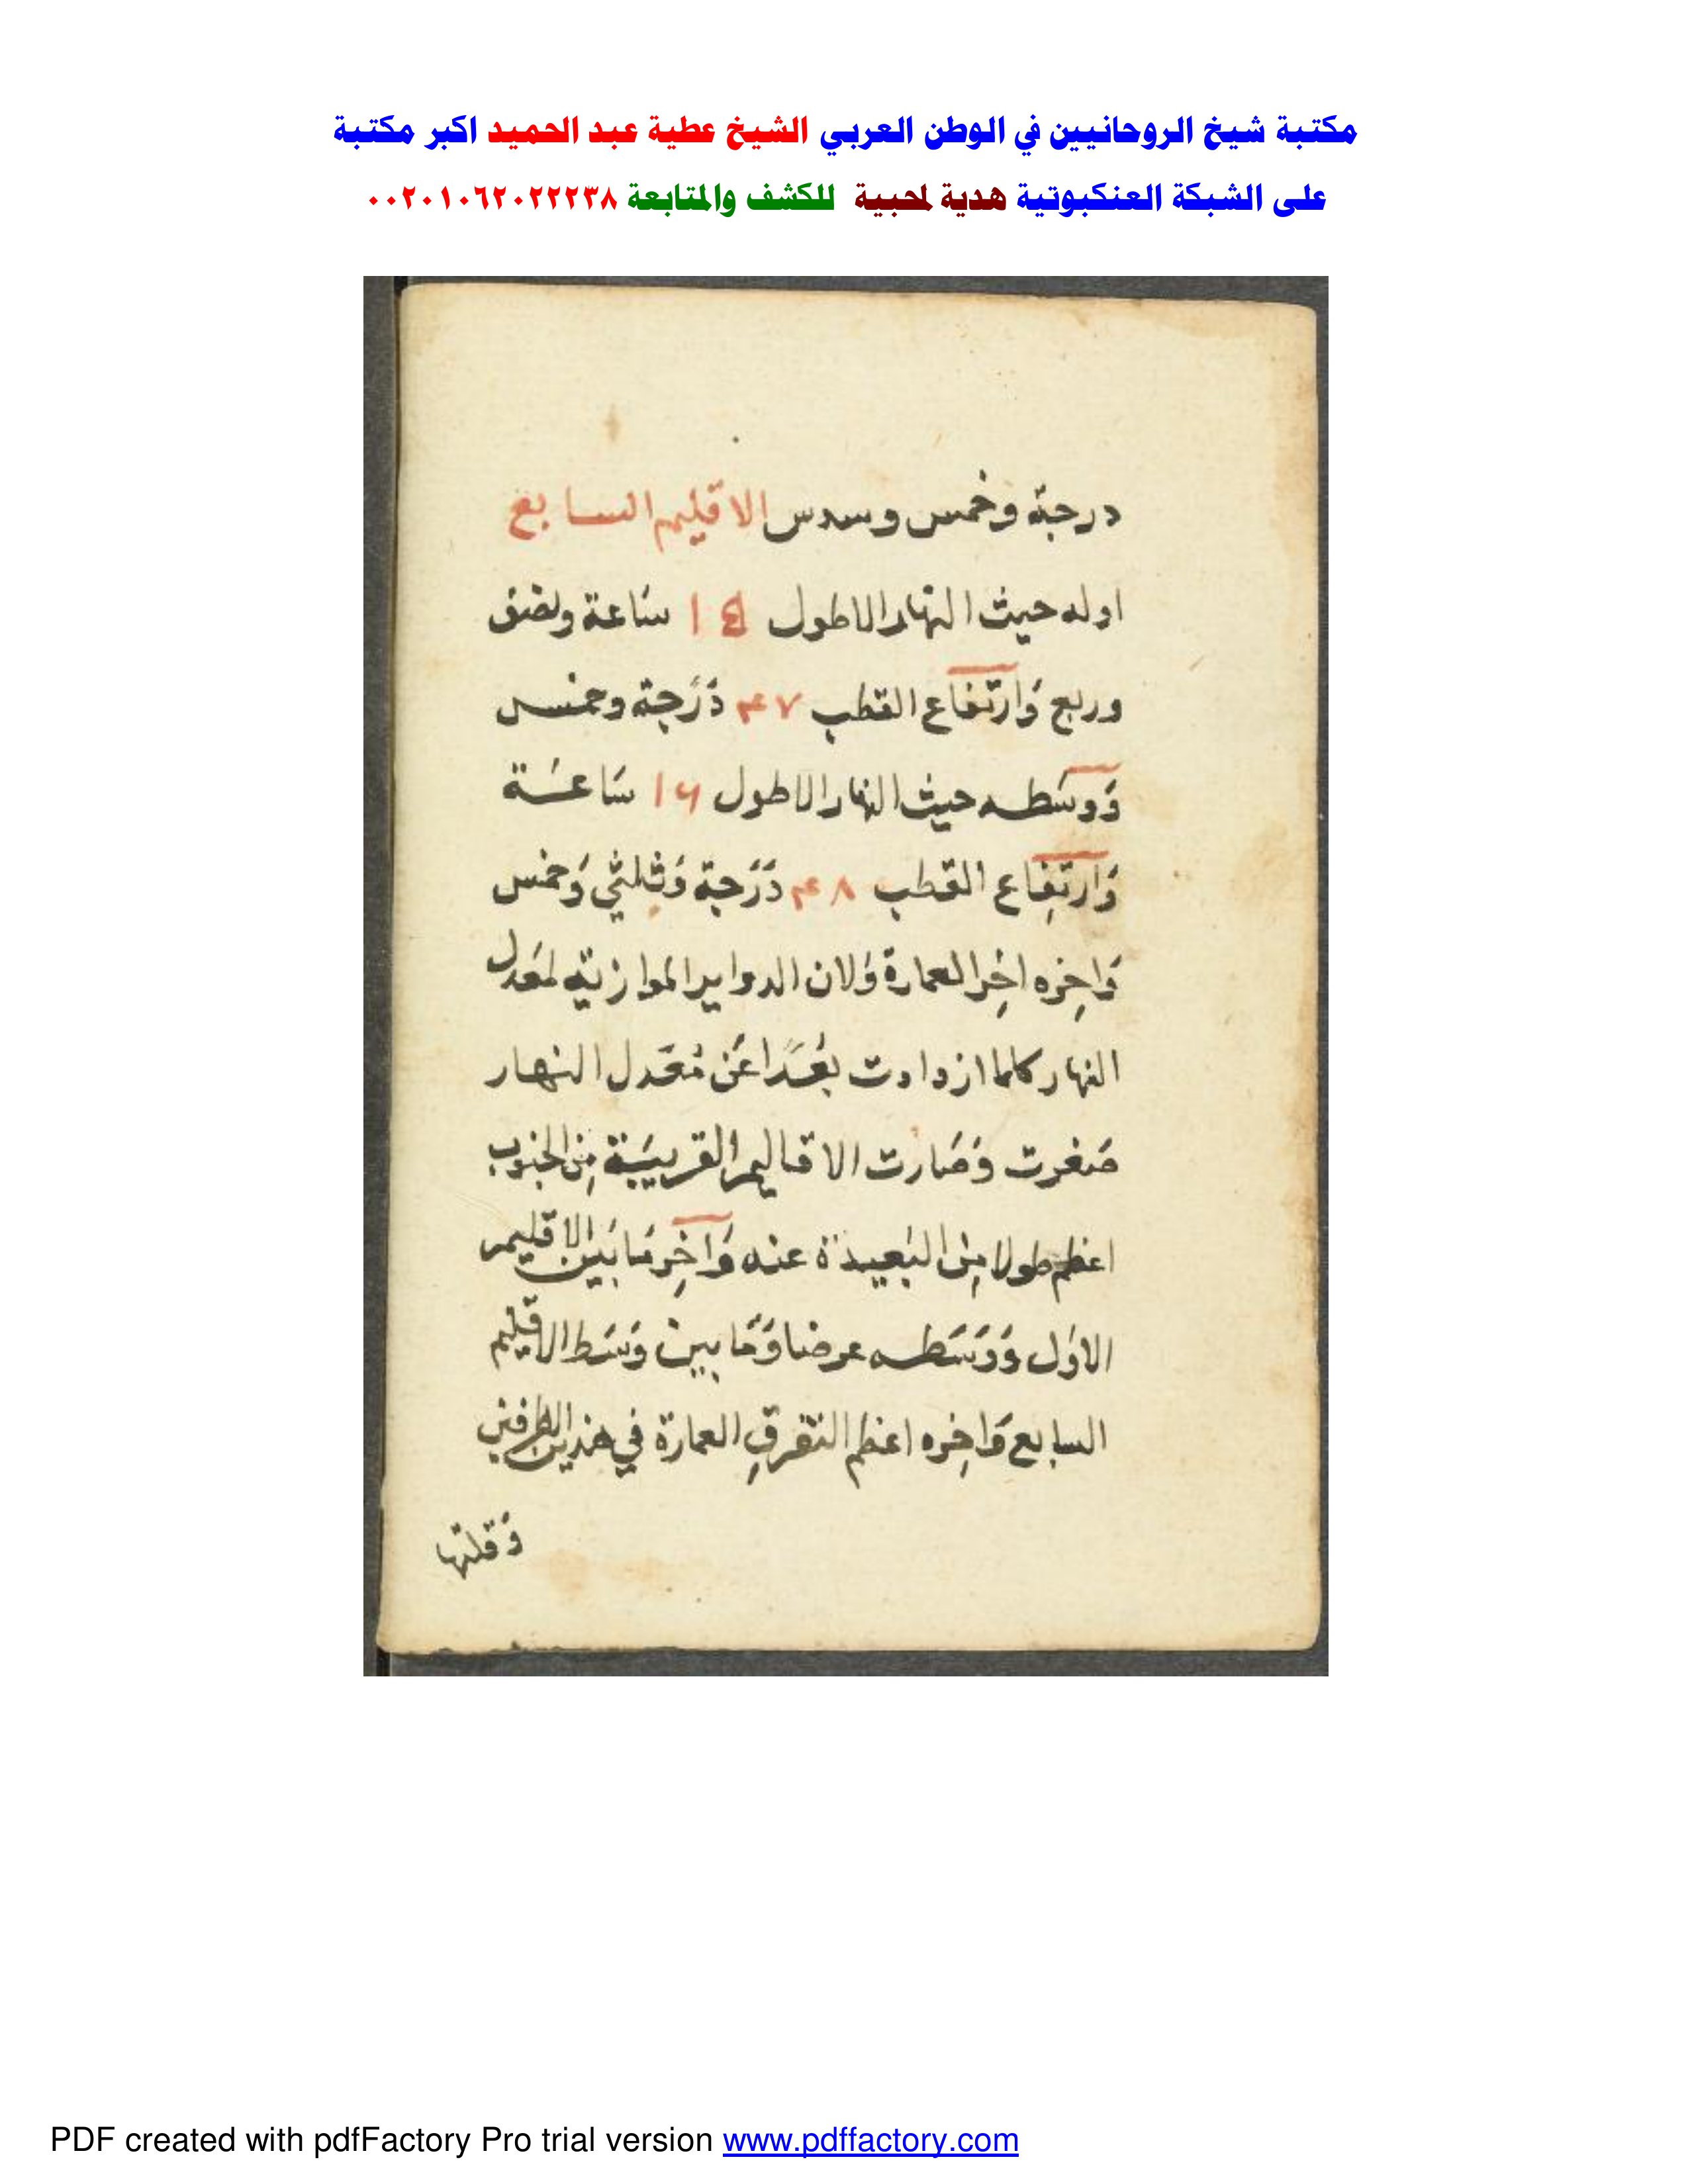 مكتبة شيخ الروحانيين في الوطن العربي الشيخ عطية عبد الحميد اكبر مكتبة
على الشبكة العنكبوتية هدية لمحبية للكشف والمتابعة ٠٠٢٠١٠٦٢٠٢٢٢٣٨
درجة وخمس وسدس الاقليم السابع
اوله حيث النهار الاطول ١٥ ساعة ونصف
وربع وَارتفاع القطب ٤٧ دَرَجة وخمس
وَوسَطه حيث النهار الاطول ١٦ سَاعَة
وَارتِفاع القطب ٤٨ دَرَجة وَثلثي وَخمس
وَاخِره اخِر العمارة وَلان الدواير الموازية لمعَدل
النهار كلما ازدادت بُعْدًا عَن مُعَدل النهار
صَغرت وَصَارت الاقاليم القريبَة مِن الجنوب
اعظم طولا مِن البَعيدة عنه وَآخِر مَا بَين الاقليم
الاوَل وَوَسَطه عرضا وَمَا بين وَسَط الاقليم
السابع وَاخِره اعظم التفرقِ العمارة في هذين الطرفين
وَقلتها
PDF created with pdfFactory Pro trial version www.pdffactory.com